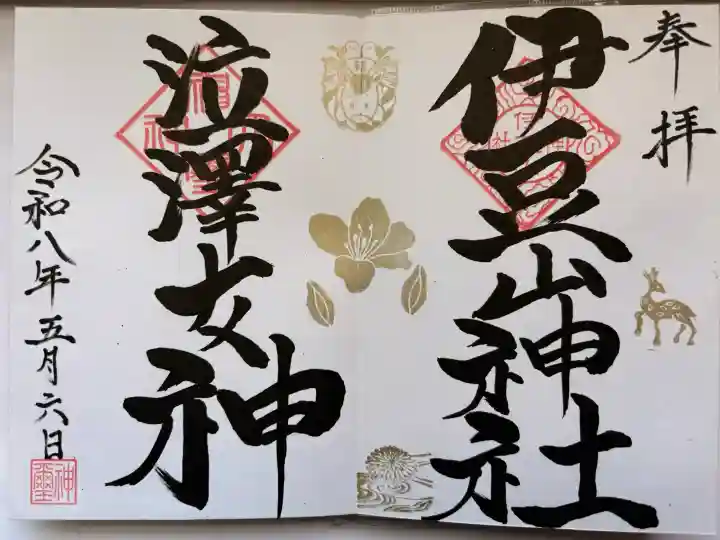 奉拝
伊豆山神社
泣澤女神
令和八年五月六日
神璽